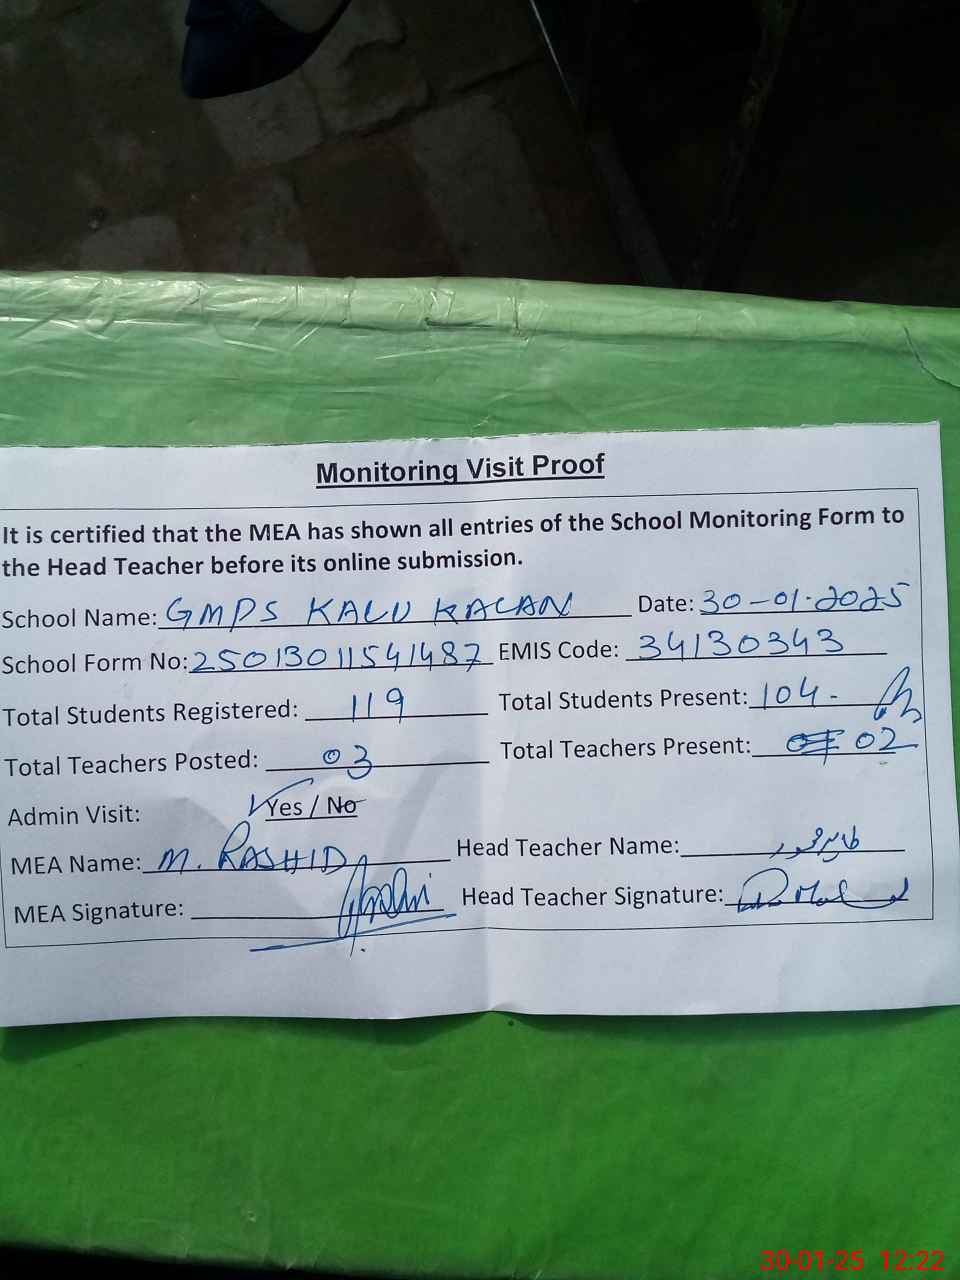 Monitoring Visit Proof
It is certified that the MEA has shown all entries of the School Monitoring Form to
the Head Teacher before its online submission.
School Name: GMPS KALU KALAN Date: 30-01-2025
School Form No: 25013011541487 EMIS Code: 34130343
Total Students Registered: 119 Total Students Present: 104-
Total Teachers Posted: 03 Total Teachers Present: 02
Admin Visit: Yes / No
MEA Name: M. RASHID Head Teacher Name:
MEA Signature: Head Teacher Signature:
30-01-25 12:22